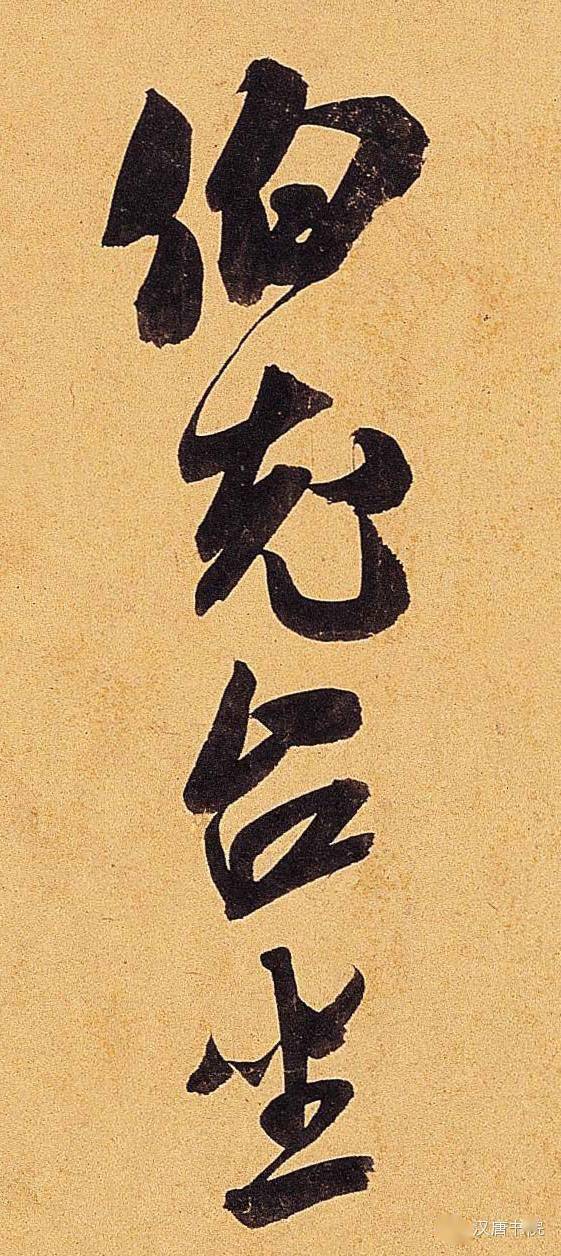 伯充台坐
汉唐书院